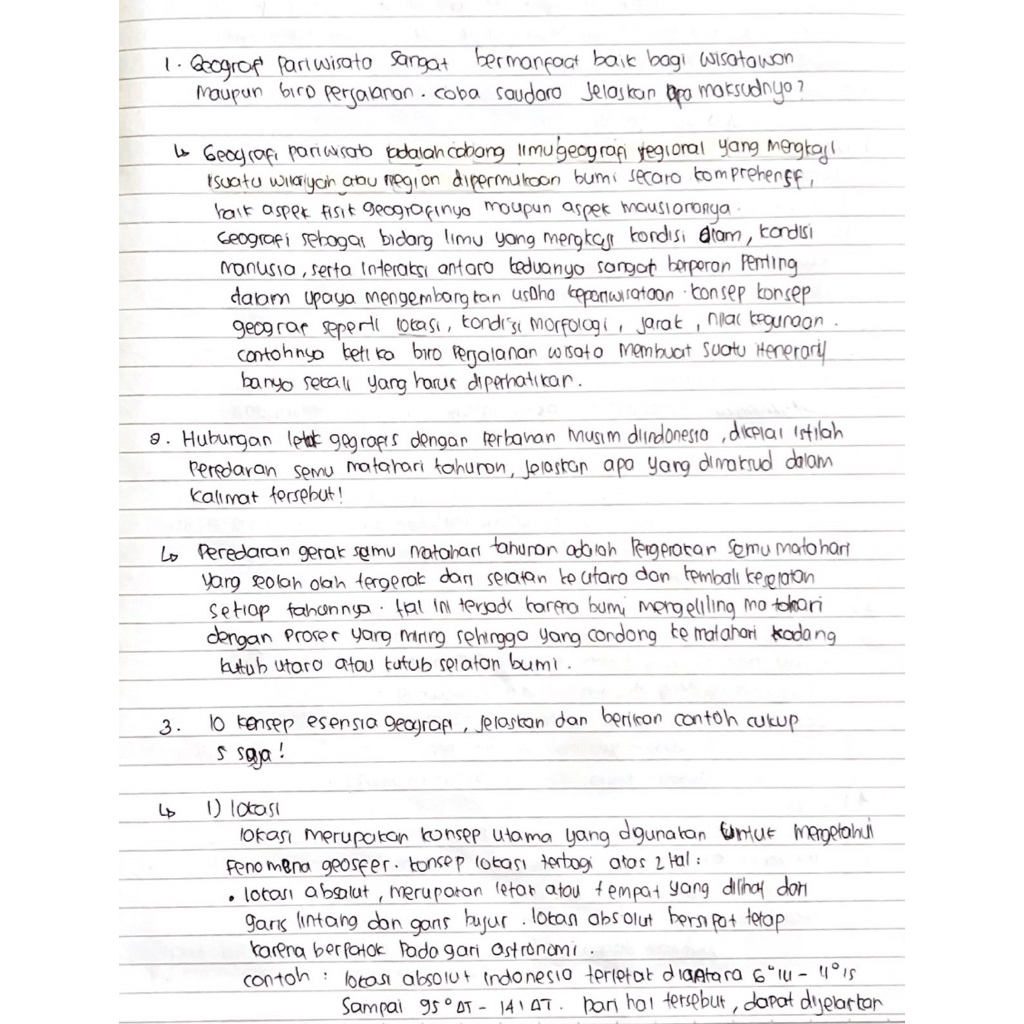 1. Geograf pariwisata sangat bermanfaat baik bagi wisatawan
maupun biro perjalanan. coba saudara jelaskan apa maksudnya?
↳ Geografi pariwisata adalah cabang ilmu geografi regional yang mengkaji
suatu wilayah atau region dipermukaan bumi secara komprehensif,
baik aspek fisik geografinya maupun aspek mausiaonya.
Geografi sebagai bidang ilmu yang mengkaji kondisi alam, kondisi
manusia, serta interaksi antara keduanya sangat berperan penting
dalam upaya mengembangkan usaha kepariwisataan. konsep konsep
geograf seperti lokasi, kondisi morfologi, jarak, nilai kegunaan.
contohnya ketika biro perjalanan wisata membuat suatu itenerarij
banya sekali yang harus diperhatikan.
2. Hubungan letak gegrafis dengan perbahan musim diindonesia, dikelai istilah
peredaran semu matahari tahunan, jelaskan apa yang dimaksud dalam
kalimat tersebut!
↳ Peredaran gerak semu matahari tahunan adalah pergerakan semu matahari
yang seolah olah tergerak dari selatan ke utara dan kembali keselatan
setiap tahunnya. Hal ini terjadi karena bumi mengeliling matahari
dengan proser yang miring sehingga yang condong ke matahari kadang
kutub utara atau kutub selatan bumi.
3. 10 konsep esensia geografi, jelaskan dan berikan contoh cukup
5 saja!
↳ 1) lokasi
lokasi merupakan konsep utama yang dgunakan untuk mengetahui
fenomena geosfer. konsep lokasi terbagi atas 2 hal:
• lokasi absolut, merupakan letak atau tempat yang dilihat dari
garis lintang dan garis bujur. lokasi absolut bersipat tetap
karena berpatok pada gari astronomi.
contoh : lokasi absolut indonesia terletak diantara 6°LU - 11°LS
sampai 95°BT - 141 BT. Dari hal tersebut, dapat dijelaskan